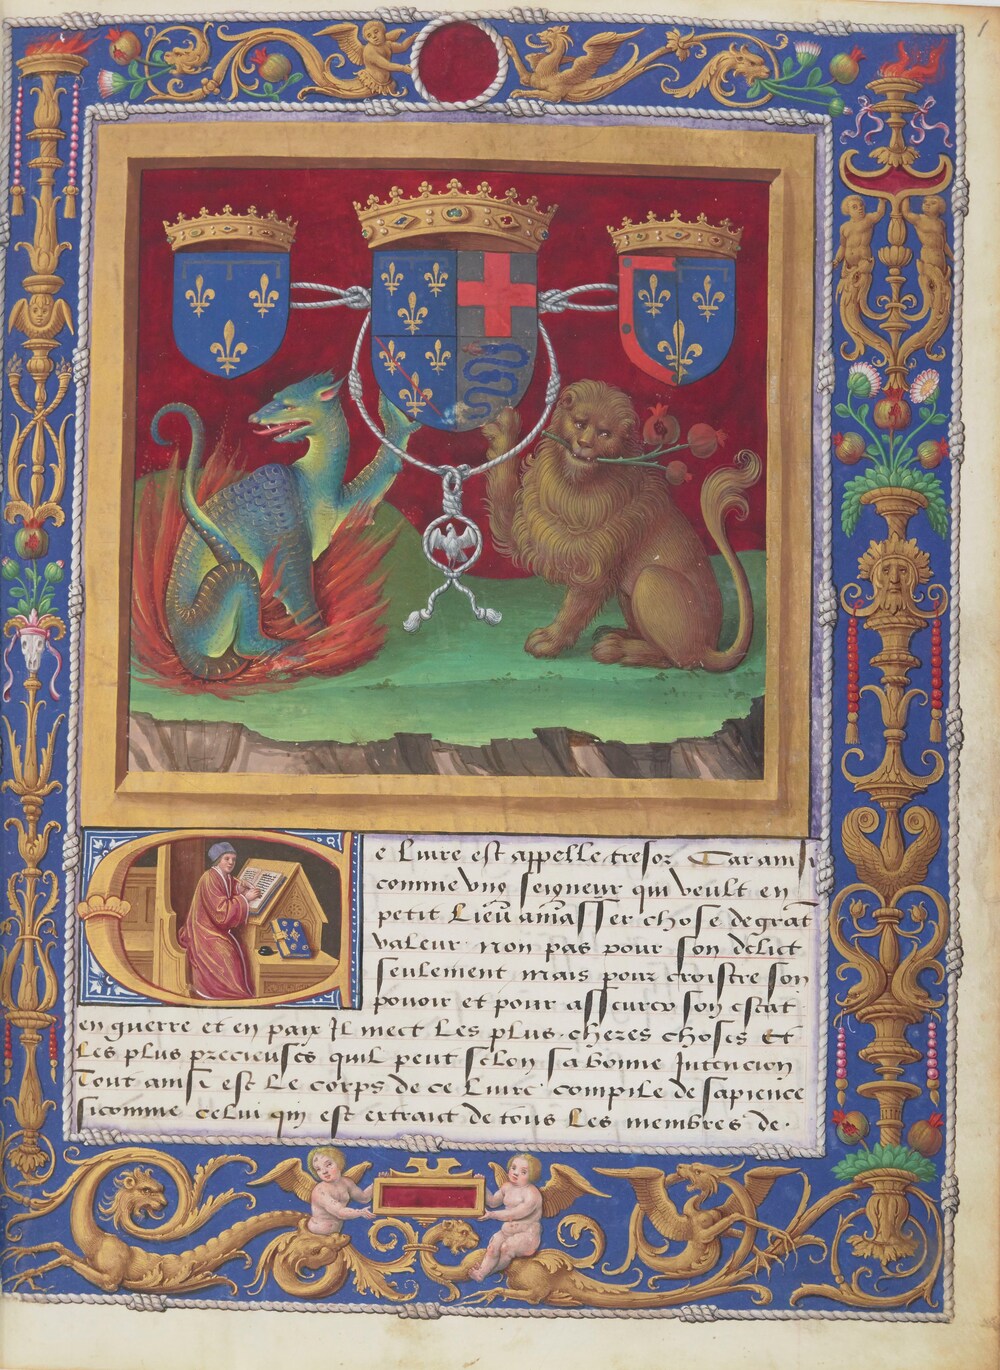 1
Ce Livre est appelle tresor Car ainsi
comme ung seigneur qui veult en
petit Lieu amasser chose de grāt
valeur non pas pour son delict
seulement mais pour croistre son
pouoir et pour asseurer son estat
en guerre et en paix Il mect Les plus cheres choses et
Les plus precieuses quil peut selon sa bonne Intencion
Tout ainsi est Le corps de ce Livre compile de sapience
sicomme celui qui est extraict de tous Les membres de.